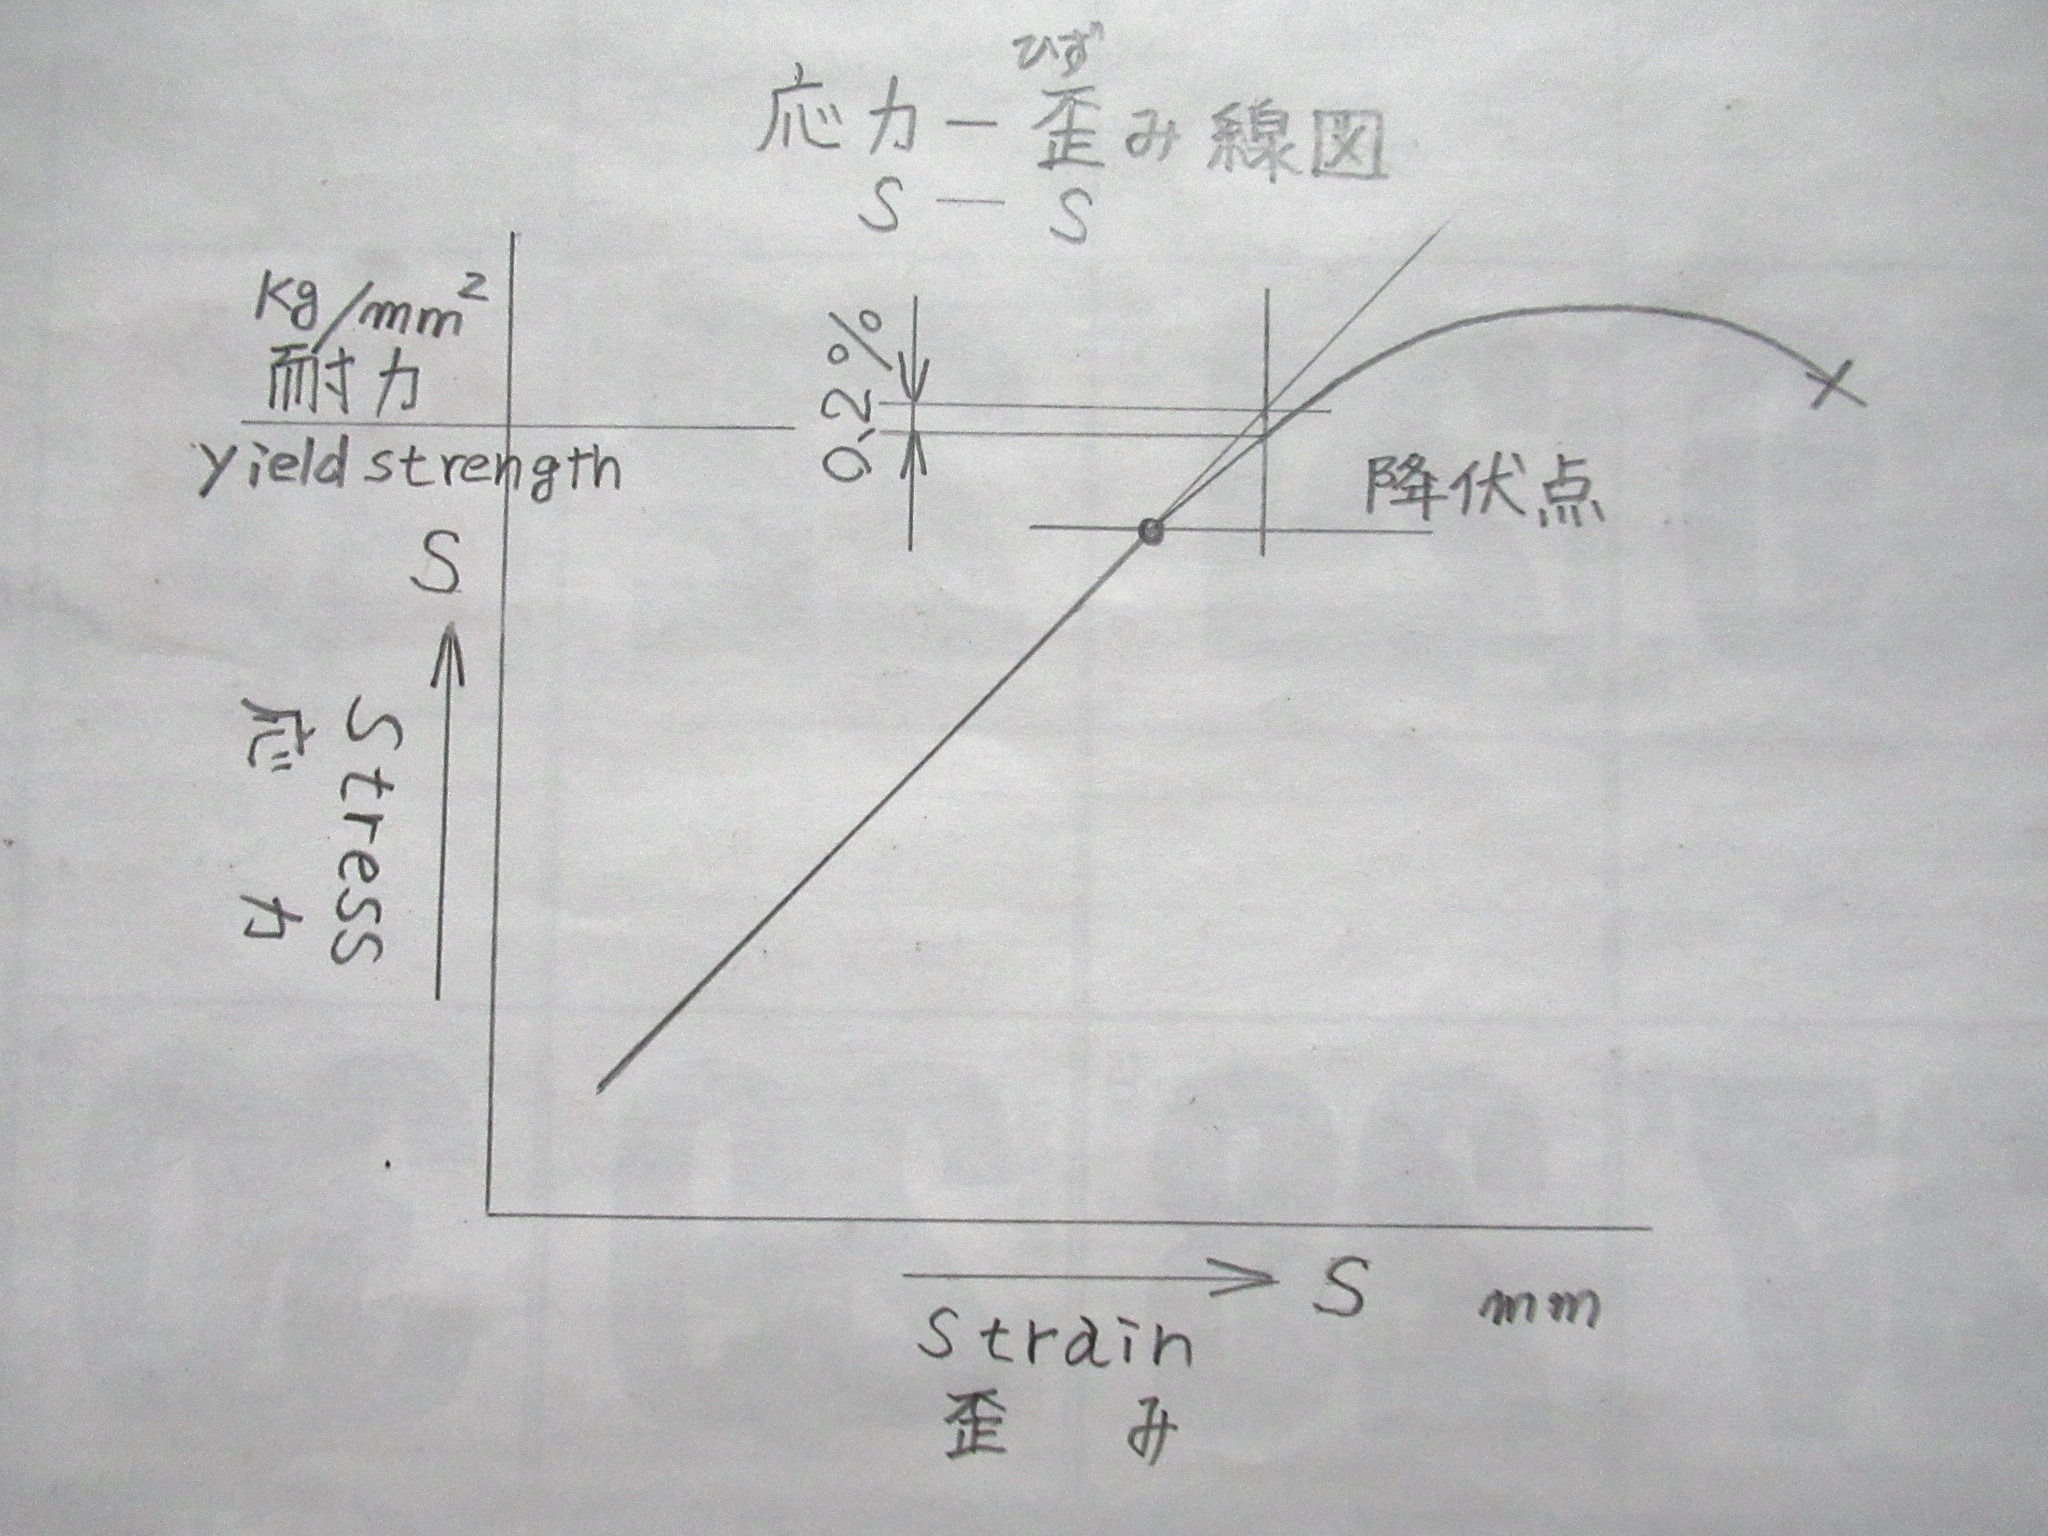 ひず
応力－歪み線図
S－S
Kg/mm²
耐力
yield strength
0.2%
降伏点
S
Stress
応力
S mm
Strain
歪み